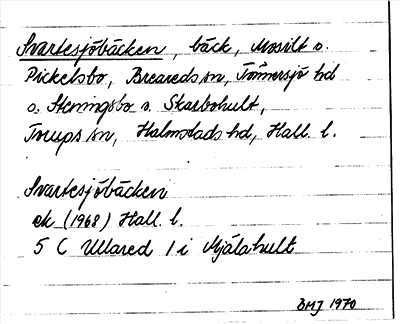 Svartesjöbäcken, bäck, Mosilt o.
Pickelsbo, Breareds sn, Tönnersjö hd
o. Steningsbo o. Skarbohult,
Torups sn, Halmstads hd, Hall. l.
Svartesjöbäcken
ek (1968) Hall. l.
5 C Ullared 1 i Mjälahult
BMJ 1970